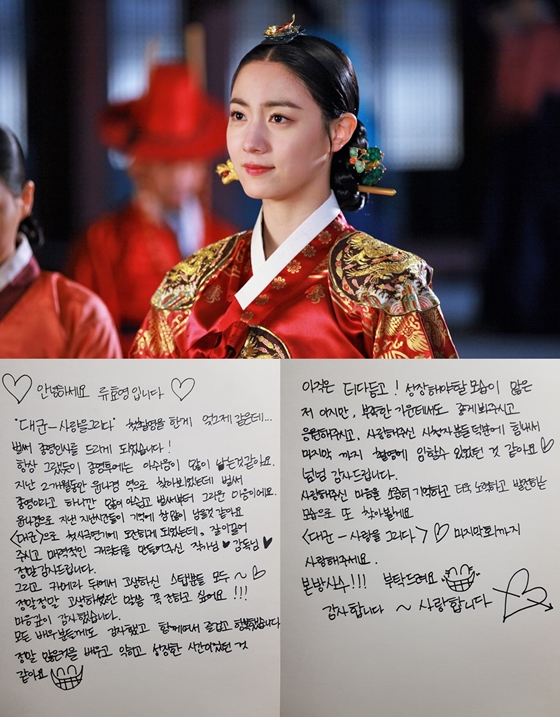 안녕하세요 류효영입니다
"대군-사랑을그리다" 첫촬영을 한게 엊그제 같은데...
벌써 종영인사를 드리게 되었습니다!
항상 그랬듯이 종영후에는 아쉬움이 많이 남는것같아요.
지난 2개월동안 윤나겸 역으로 찾아뵈었는데 벌써
종영이라고 하니깐 많이 아쉽고 벌써부터 그리운 마음이에요.
윤나겸으로 지낸 지난시간들이 기억에 참 많이 남을것 같아요
<대군>으로 첫사극연기에 도전하게 되었는데, 잘이끌어
주시고 매력적인 캐릭터를 만들어주신 작가님 감독님
정말 감사드립니다.
그리고 카메라 뒤에서 고생하신 스탭분들 모두 ~
정말정말 고생하셨단 말씀 꼭 전하고 싶어요 !!!
마음깊이 감사했습니다.
모든 배우분들께도 감사했고 함께여서 즐겁고 행복했습니다
정말 많은것을 배우고 익히고 성장한 시간이었던 것
같아요
아직은 더 다듬고! 성장해야할 모습이 많은
저 이지만, 부족한 가운데서도 좋게봐주시고
응원해주시고, 사랑해주신 시청자분들 덕분에 힘내서
마지막 까지 촬영에 임할수 있었던 것 같아요
넘넘 감사드립니다.
사랑해주신 마음을 소중히 기억하고 더욱 노력하고 발전하는
모습으로 또 찾아뵐게요
<대군-사랑을 그리다> 마지막회까지
사랑해주세요.
본방사수!!! 부탁드려요
감사합니다 ~ 사랑합니다